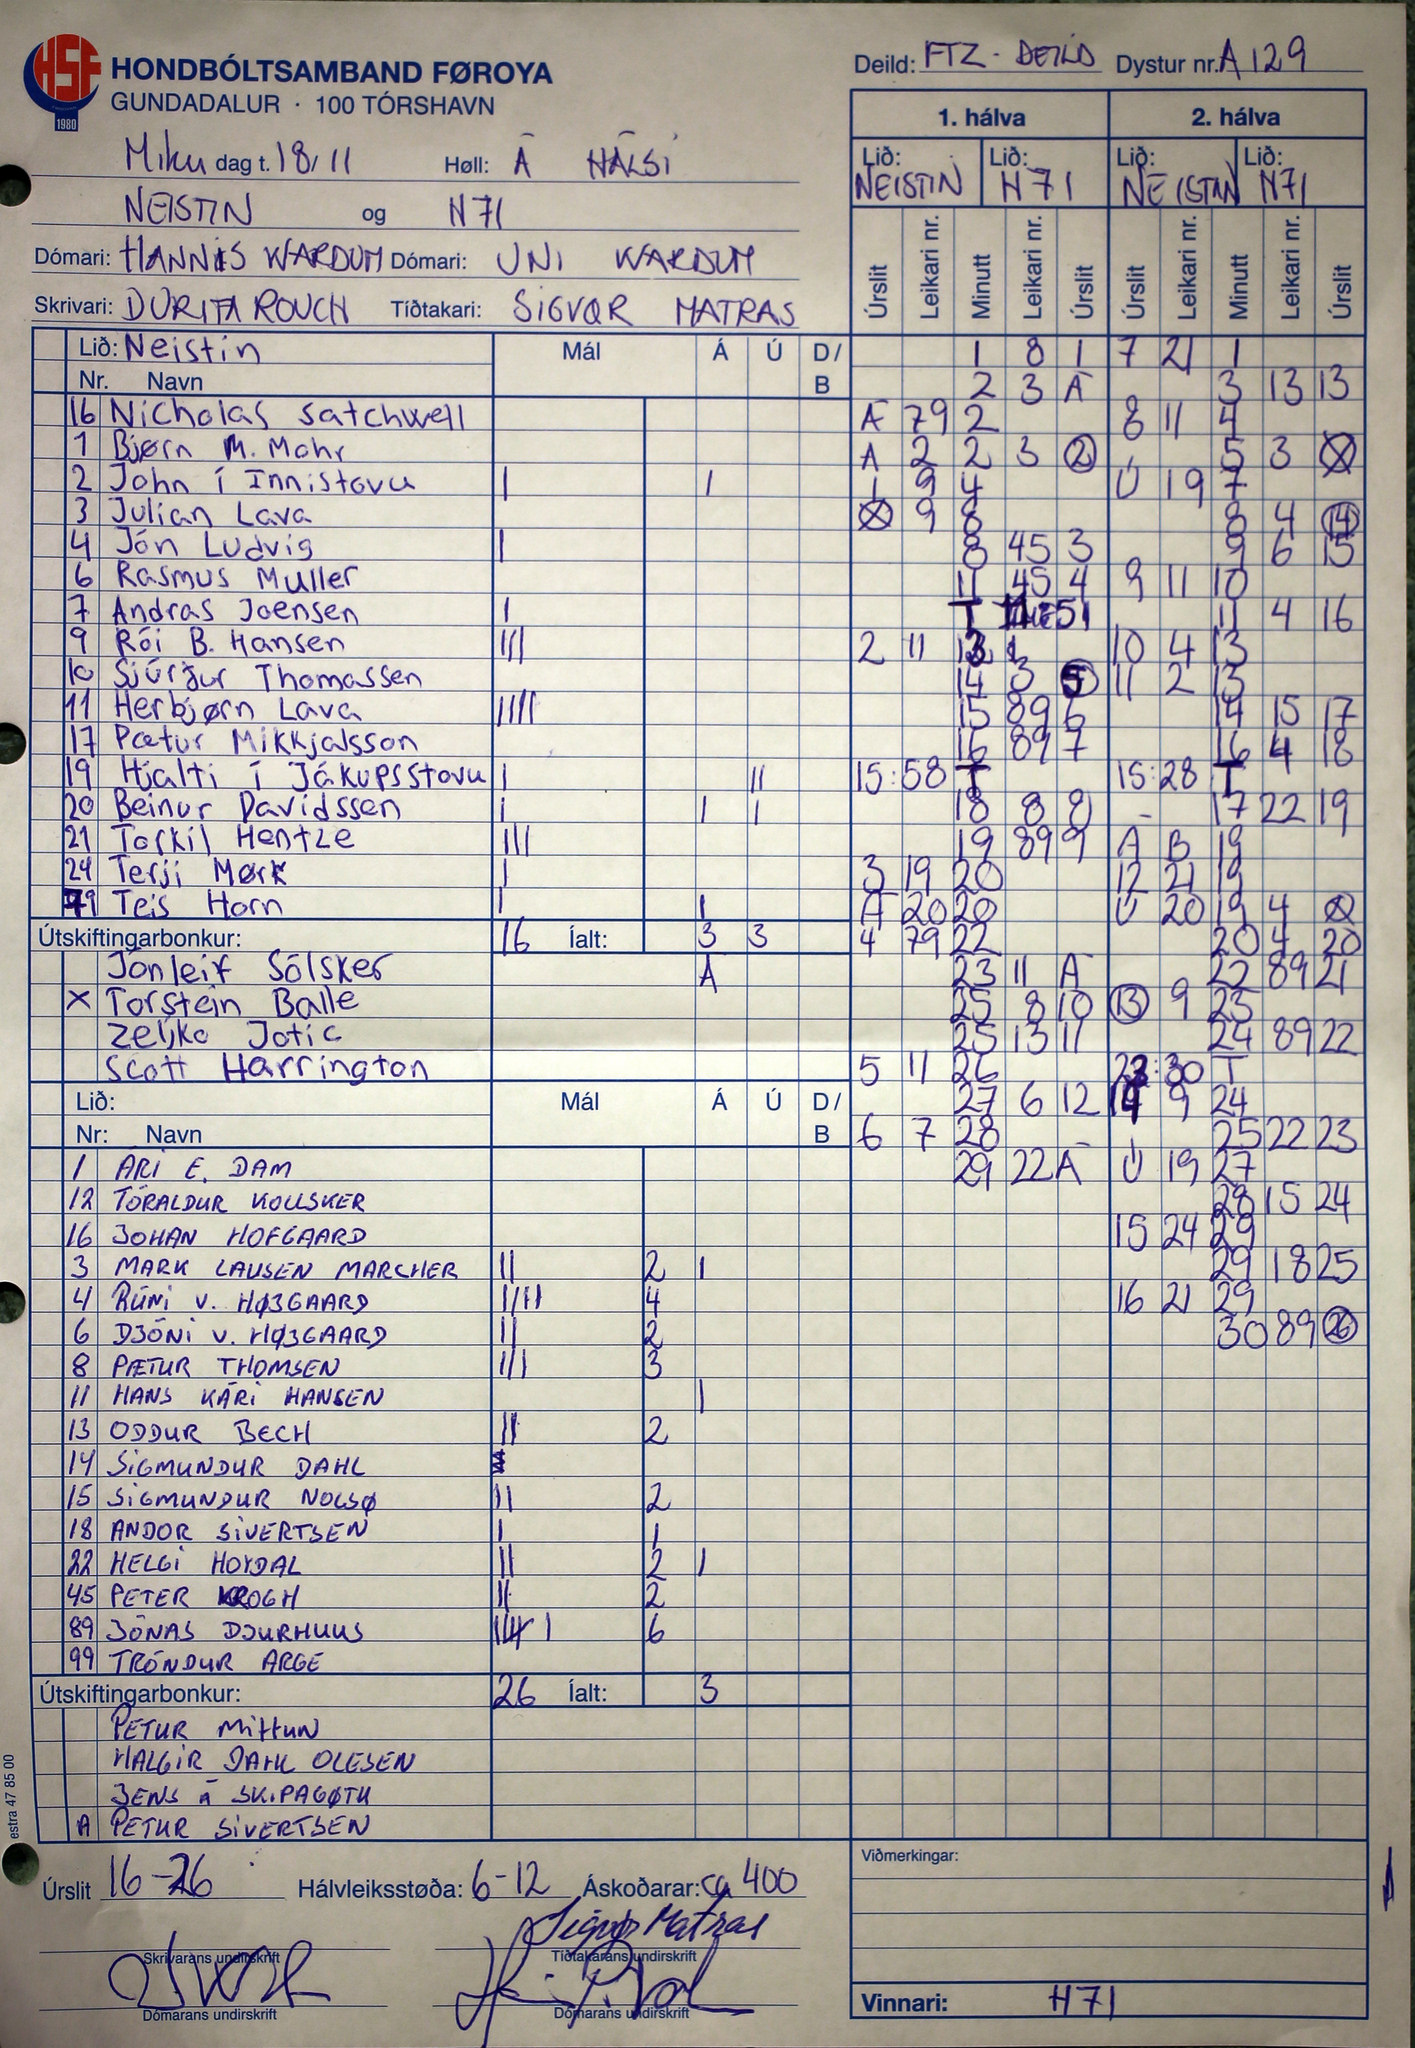 HSF
1980
HONDBÓLTSAMBAND FØROYA
GUNDADALUR · 100 TÓRSHAVN
Deild: FTZ - DEILD Dystur nr. A 129
Miku dag t. 18/11 Høll: Á HÁLSI
NEISTIN og H71
Dómari: HANNIS WARDUM Dómari: UNI WARDUM
Skrivari: DURITA ROUCH Tíðtakari: SIGVØR MATRAS
1. hálva 2. hálva
Lið: NEISTIN Lið: H71 Lið: NEISTIN Lið: H71
Úrslit Leikari nr. Minutt Leikari nr. Úrslit Úrslit Leikari nr. Minutt Leikari nr. Úrslit
Lið: Neistin Mál Á Ú D/B
Nr. Navn
16 Nicholas Satchwell
1 Bjørn M. Mohr
2 John í Innistovu I I
3 Julian Lava
4 Jón Ludvig I
6 Rasmus Muller
7 Andras Joensen I
9 Rói B. Hansen III
10 Sjúrður Thomassen
11 Herbjørn Lava IIII
17 Pætur Mikkjalsson
19 Hjalti í Jákupsstovu I II
20 Beinur Davidssen I I I
21 Torkil Hentze III
24 Terji Mørk I
79 Teis Horn I I
Útskiftingarbonkur: 16 Íalt: 3 3
Jónleif Sólsker A
X Torstein Balle
Zeljko Jotic
Scott Harrington
Lið: Mál Á Ú D/B
Nr: Navn
1 ARI E. DAM
12 TÓRALDUR KOLLSKER
16 JOHAN HOFGAARD
3 MARK LAUSEN MARCHER II 2 I
4 RÚNI V. HØJGAARD IIII 4
6 DJÓNI V. HØJGAARD II 2
8 PÆTUR THOMSEN III 3
11 HANS KÁRI HANSEN I
13 ODDUR BECH II 2
14 SIGMUNDUR DAHL
15 SIGMUNDUR NOLSØ II 2
18 ANDOR SIVERTSEN I 1
22 HELGI HOYDAL II 2 I
45 PETER KROGH II 2
89 JÓNAS DJURHUUS IIII I 6
99 TRÓNDUR ARGE
Útskiftingarbonkur: 26 Íalt: 3
PETUR Mittun
HALGIR DAHL OLESEN
JENS Á SKIPAGØTU
A PETUR SIVERTSEN
1 8 1
2 3 Á
Á 79 2
A 2 2 3 2
1 9 4
9 8
8 45 3
11 45 4
T
2 11
14 3 5
15 89 6
16 89 7
15:58 T
18 8 8
19 89 9
3 19 20
Á 20 20
4 79 22
23 11 Á
25 8 10
25 13 11
5 11 26
27 6 12
6 7 28
29 22 Á
7 21 1
3 13 13
8 11 4
5 3
Ú 19 7
8 4 14
9 6 15
9 11 10
11 4 16
10 4 13
11 2 13
14 15 17
16 4 18
15:28 T
17 22 19
A B 19
12 21 19
Ú 20 19 4
20 4 20
22 89 21
13 9 23
24 89 22
:30 T
14 9 24
25 22 23
Ú 19 27
28 15 24
15 24 29
29 18 25
16 21 29
30 89 26
Úrslit 16-26 Hálvleiksstøða: 6-12 Áskoðarar: ca 400
Sigvør Matras
Skrivarans undirskrift Tíðtakarans undirskrift
Dómarans undirskrift Dómarans undirskrift
Viðmerkingar:
Vinnari: H71
estra 47 85 00